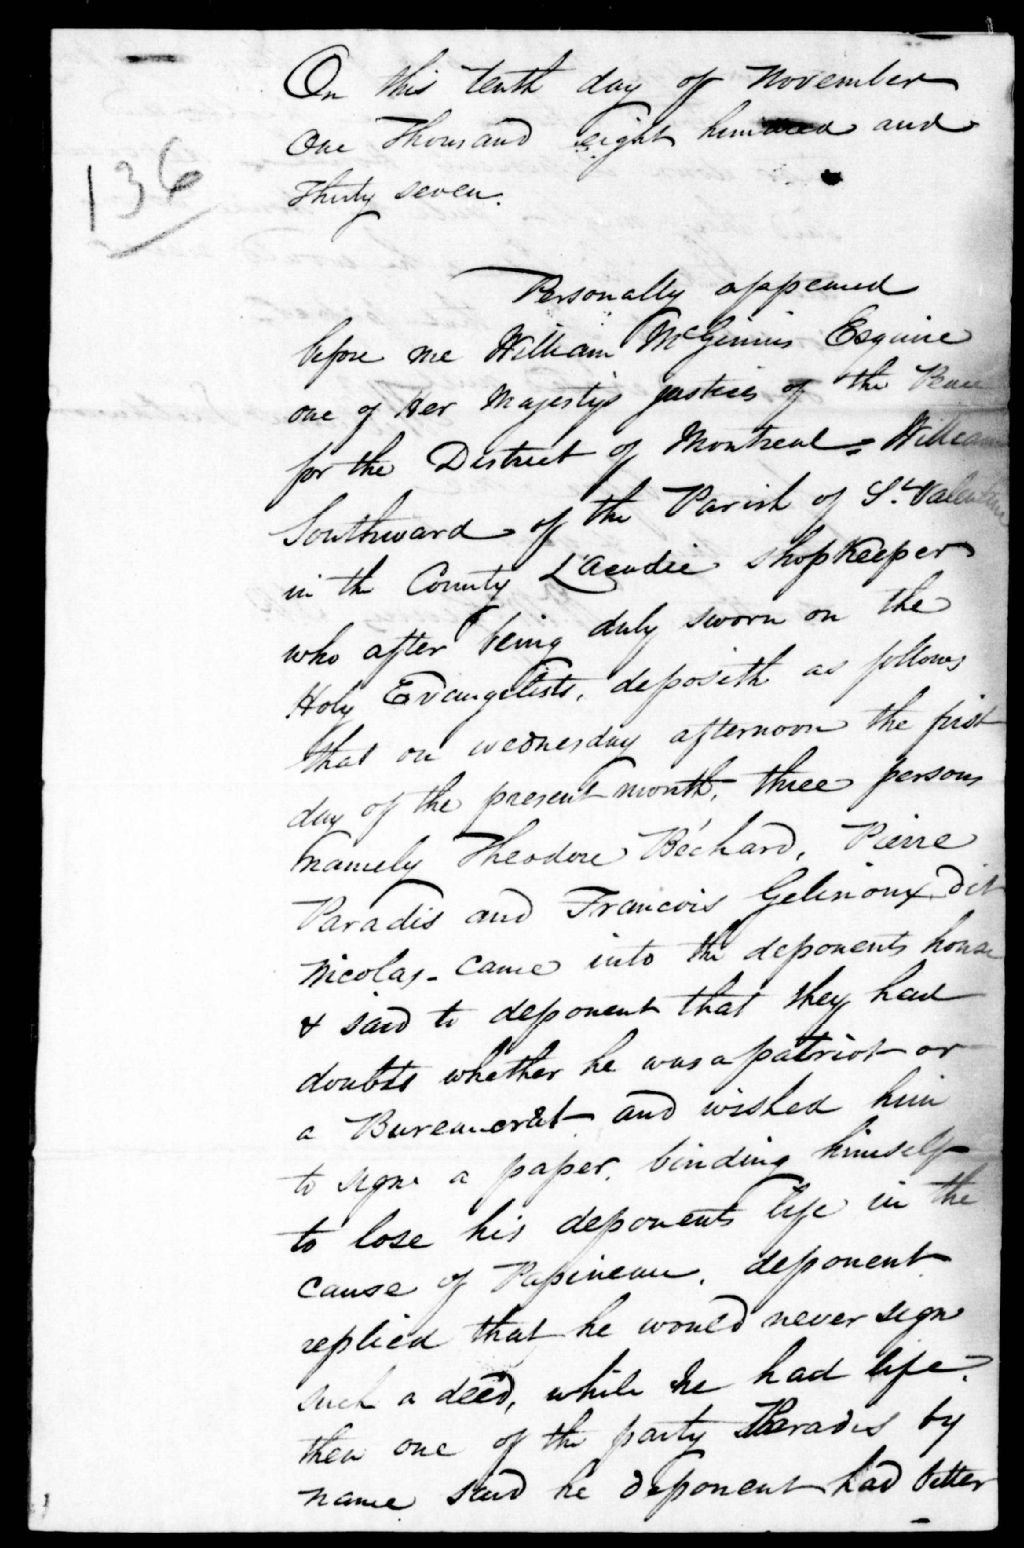 On this tenth day of November
136
One Thousand eight hundred and
Thirty seven.
Personally appeared
before me William McGinnis Esquire
one of Her Majestys justices of the Peace
for the District of Montreal = William
Southward of the Parish of St. Valentine
in th County L'acadie shopkeeper
who after being duly sworn on the
Holy Evangelists, deposith as follows
that on wednesday afternoon the first
day of the present month, three persons
namely Theodore Béchard, Pierre
Paradis and Francois Gelinoux dit
Nicolas - came into the deponents house
& said to deponent that they had
doubts whether he was a patriot or
a Bureaucrat and wished him
to sign a paper, binding himself
to lose his deponents life in the
cause of Papineau. deponent
replied that he would never sign
such a deed, while he had life -
then one of the party Paradis by
name said he deponent had better